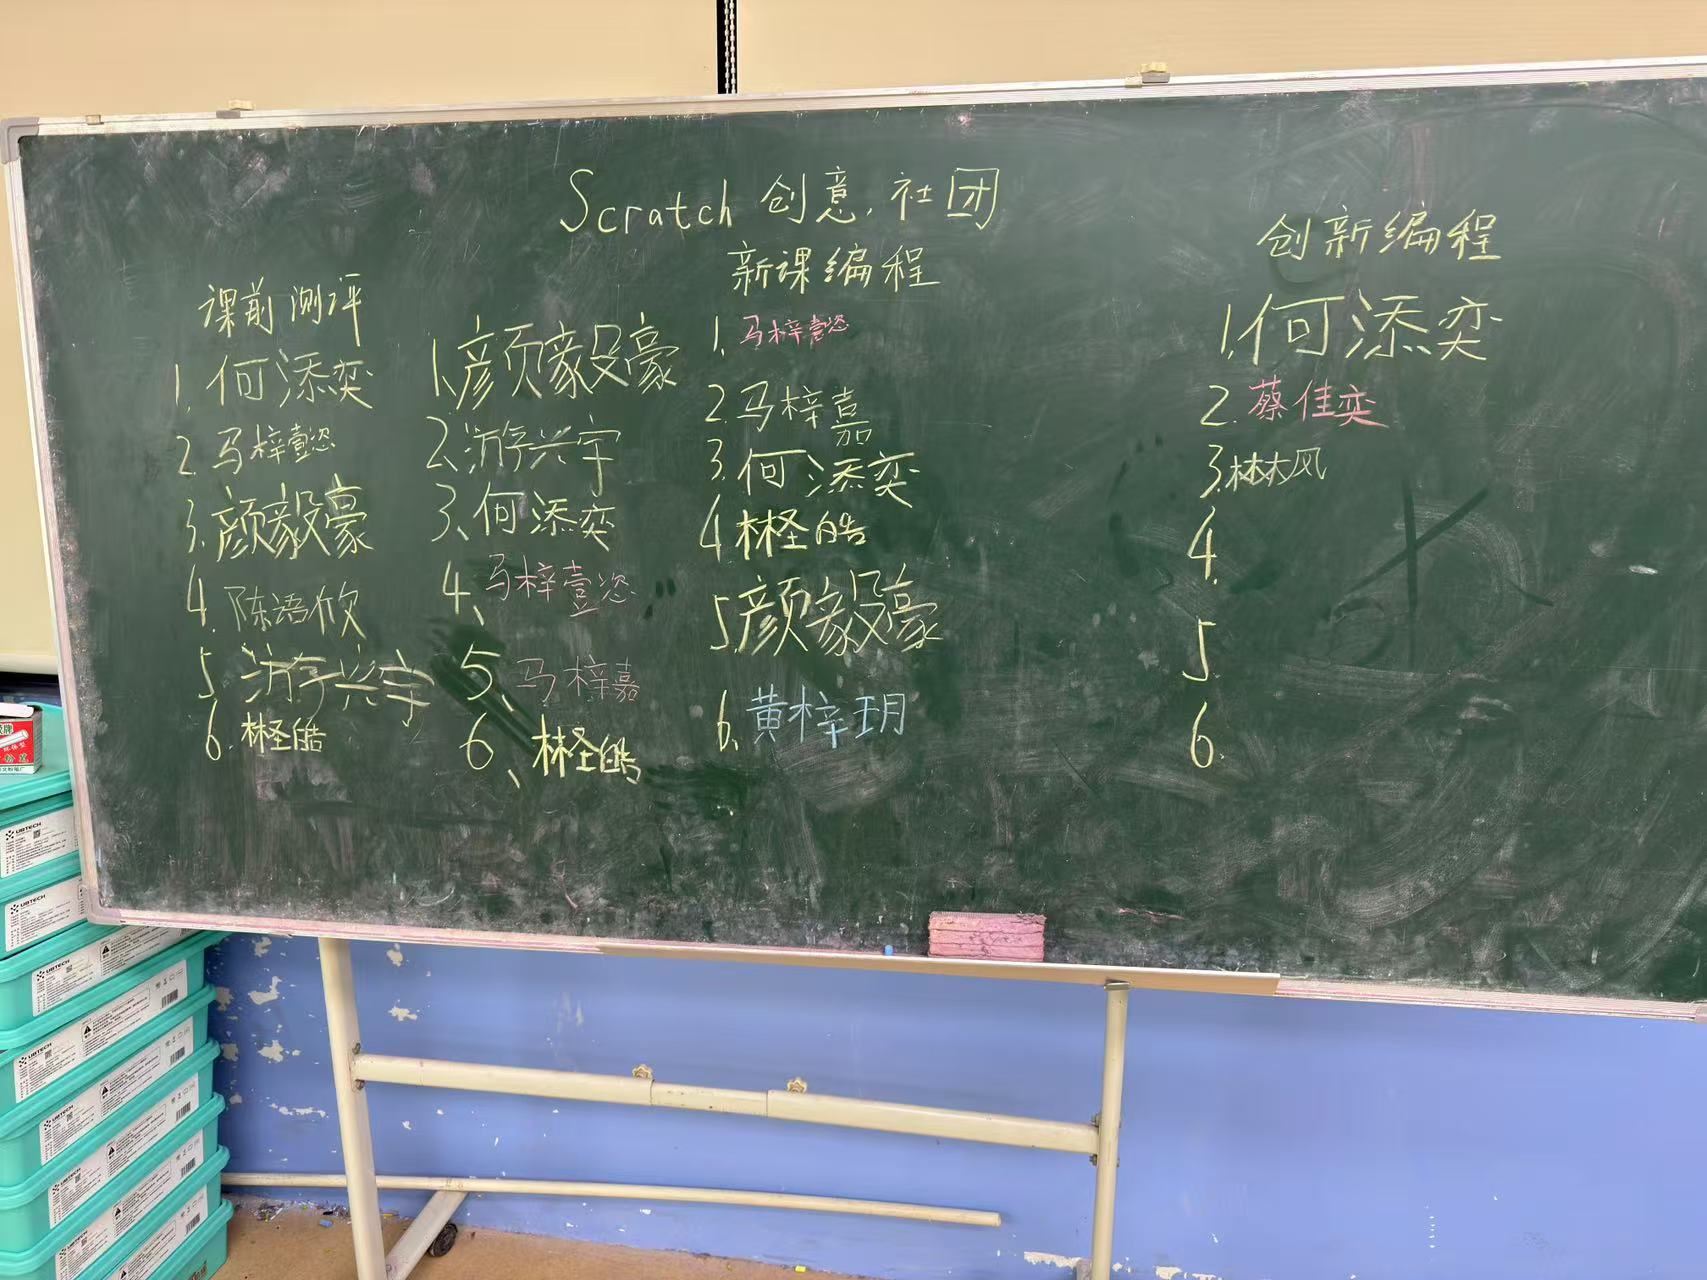 Scratch 创意社团
课前测评
1. 何添奕
2. 马梓懿
3. 颜毅豪
4. 陈语欣
5. 游兴宇
6. 林圣皓
1、颜毅豪
2、游兴宇
3、何添奕
4、马梓懿
5、马梓嘉
6、林圣皓
新课编程
1. 马梓懿
2. 马梓嘉
3. 何添奕
4. 林圣皓
5. 颜毅豪
6. 黄梓玥
创新编程
1. 何添奕
2. 蔡佳奕
3. 林大风
4.
5.
6.
UBTECH
UBTECH
UBTECH
UBTECH
UBTECH
UBTECH
UBTECH
UBTECH